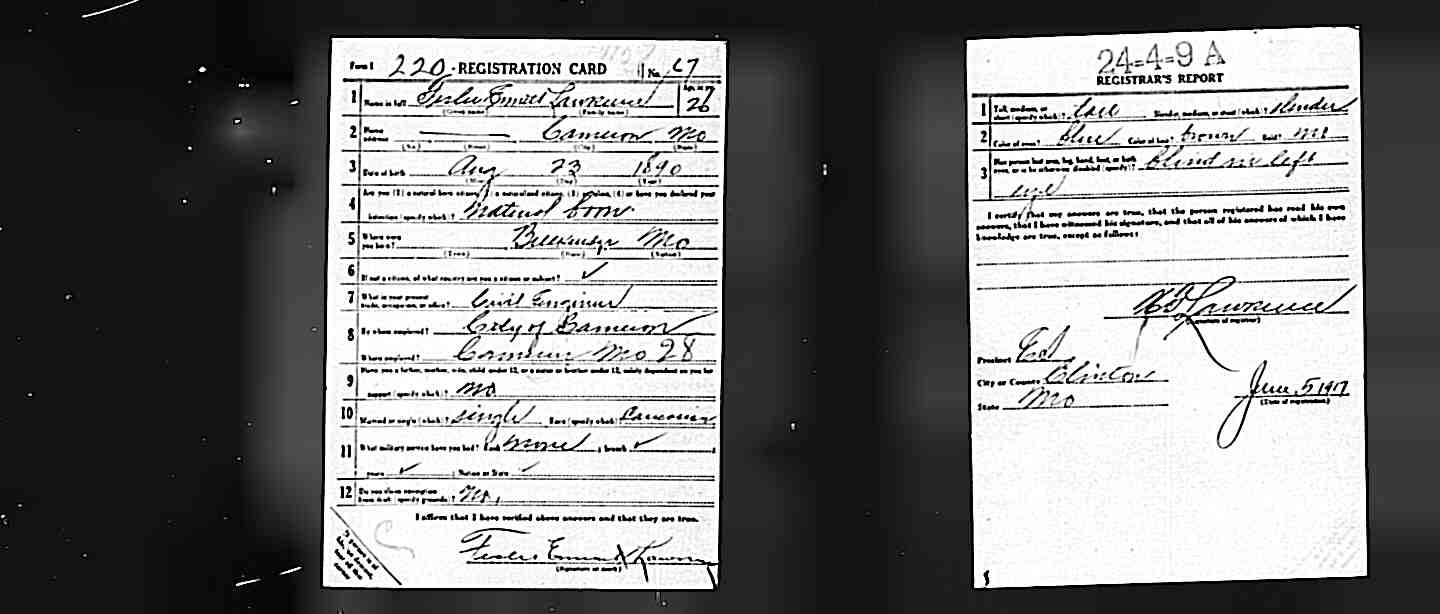 Form 1 220 - REGISTRATION CARD No. 67
1 Name in full Lawrence Age, in yrs. 26
(Given name) (Family name)
2 Home address Cameron Mo
(No.) (Street) (City) (State)
3 Date of birth Aug 23 1890
(Month) (Day) (Year)
4 Are you (1) a natural born citizen, (2) a naturalized citizen, (3) an alien, (4) or have you declared your
intention (specify which)? Natural born
5 Where were you born? Mo
(Town) (State) (Nation)
6 If not a citizen, of what country are you a citizen or subject? ✓
7 What is your present trade, occupation, or office? Civil Engineer
8 By whom employed? City of Cameron
Where employed? Cameron Mo 28
9 Have you a father, mother, wife, child under 12, or a sister or brother under 12, solely dependent on you for
support (specify which)? No
10 Married or single (which)? Single Race (specify which)? Caucasian
11 What military service have you had? Rank None ; branch ✓ ;
years ✓ ; Nation or State ✓
12 Do you claim exemption from draft (specify grounds)? No.
I affirm that I have verified above answers and that they are true.
Lawrence
(Signature or mark)
24-4-9 A
REGISTRAR'S REPORT
1 Tall, medium, or short (specify which)? tall Slender, medium, or stout (which)? slender
2 Color of eyes? blue Color of hair? brown Bald? no
3 Has person lost arm, leg, hand, foot, or both eyes, or is he otherwise disabled (specify)? blind in left
eye
I certify that my answers are true, that the person registered has read his own
answers, that I have witnessed his signature, and that all of his answers of which I have
knowledge are true, except as follows:
Lawrence
(Signature of registrar)
Precinct
City or County Clinton
State Mo
June 5 1917
(Date of registration)